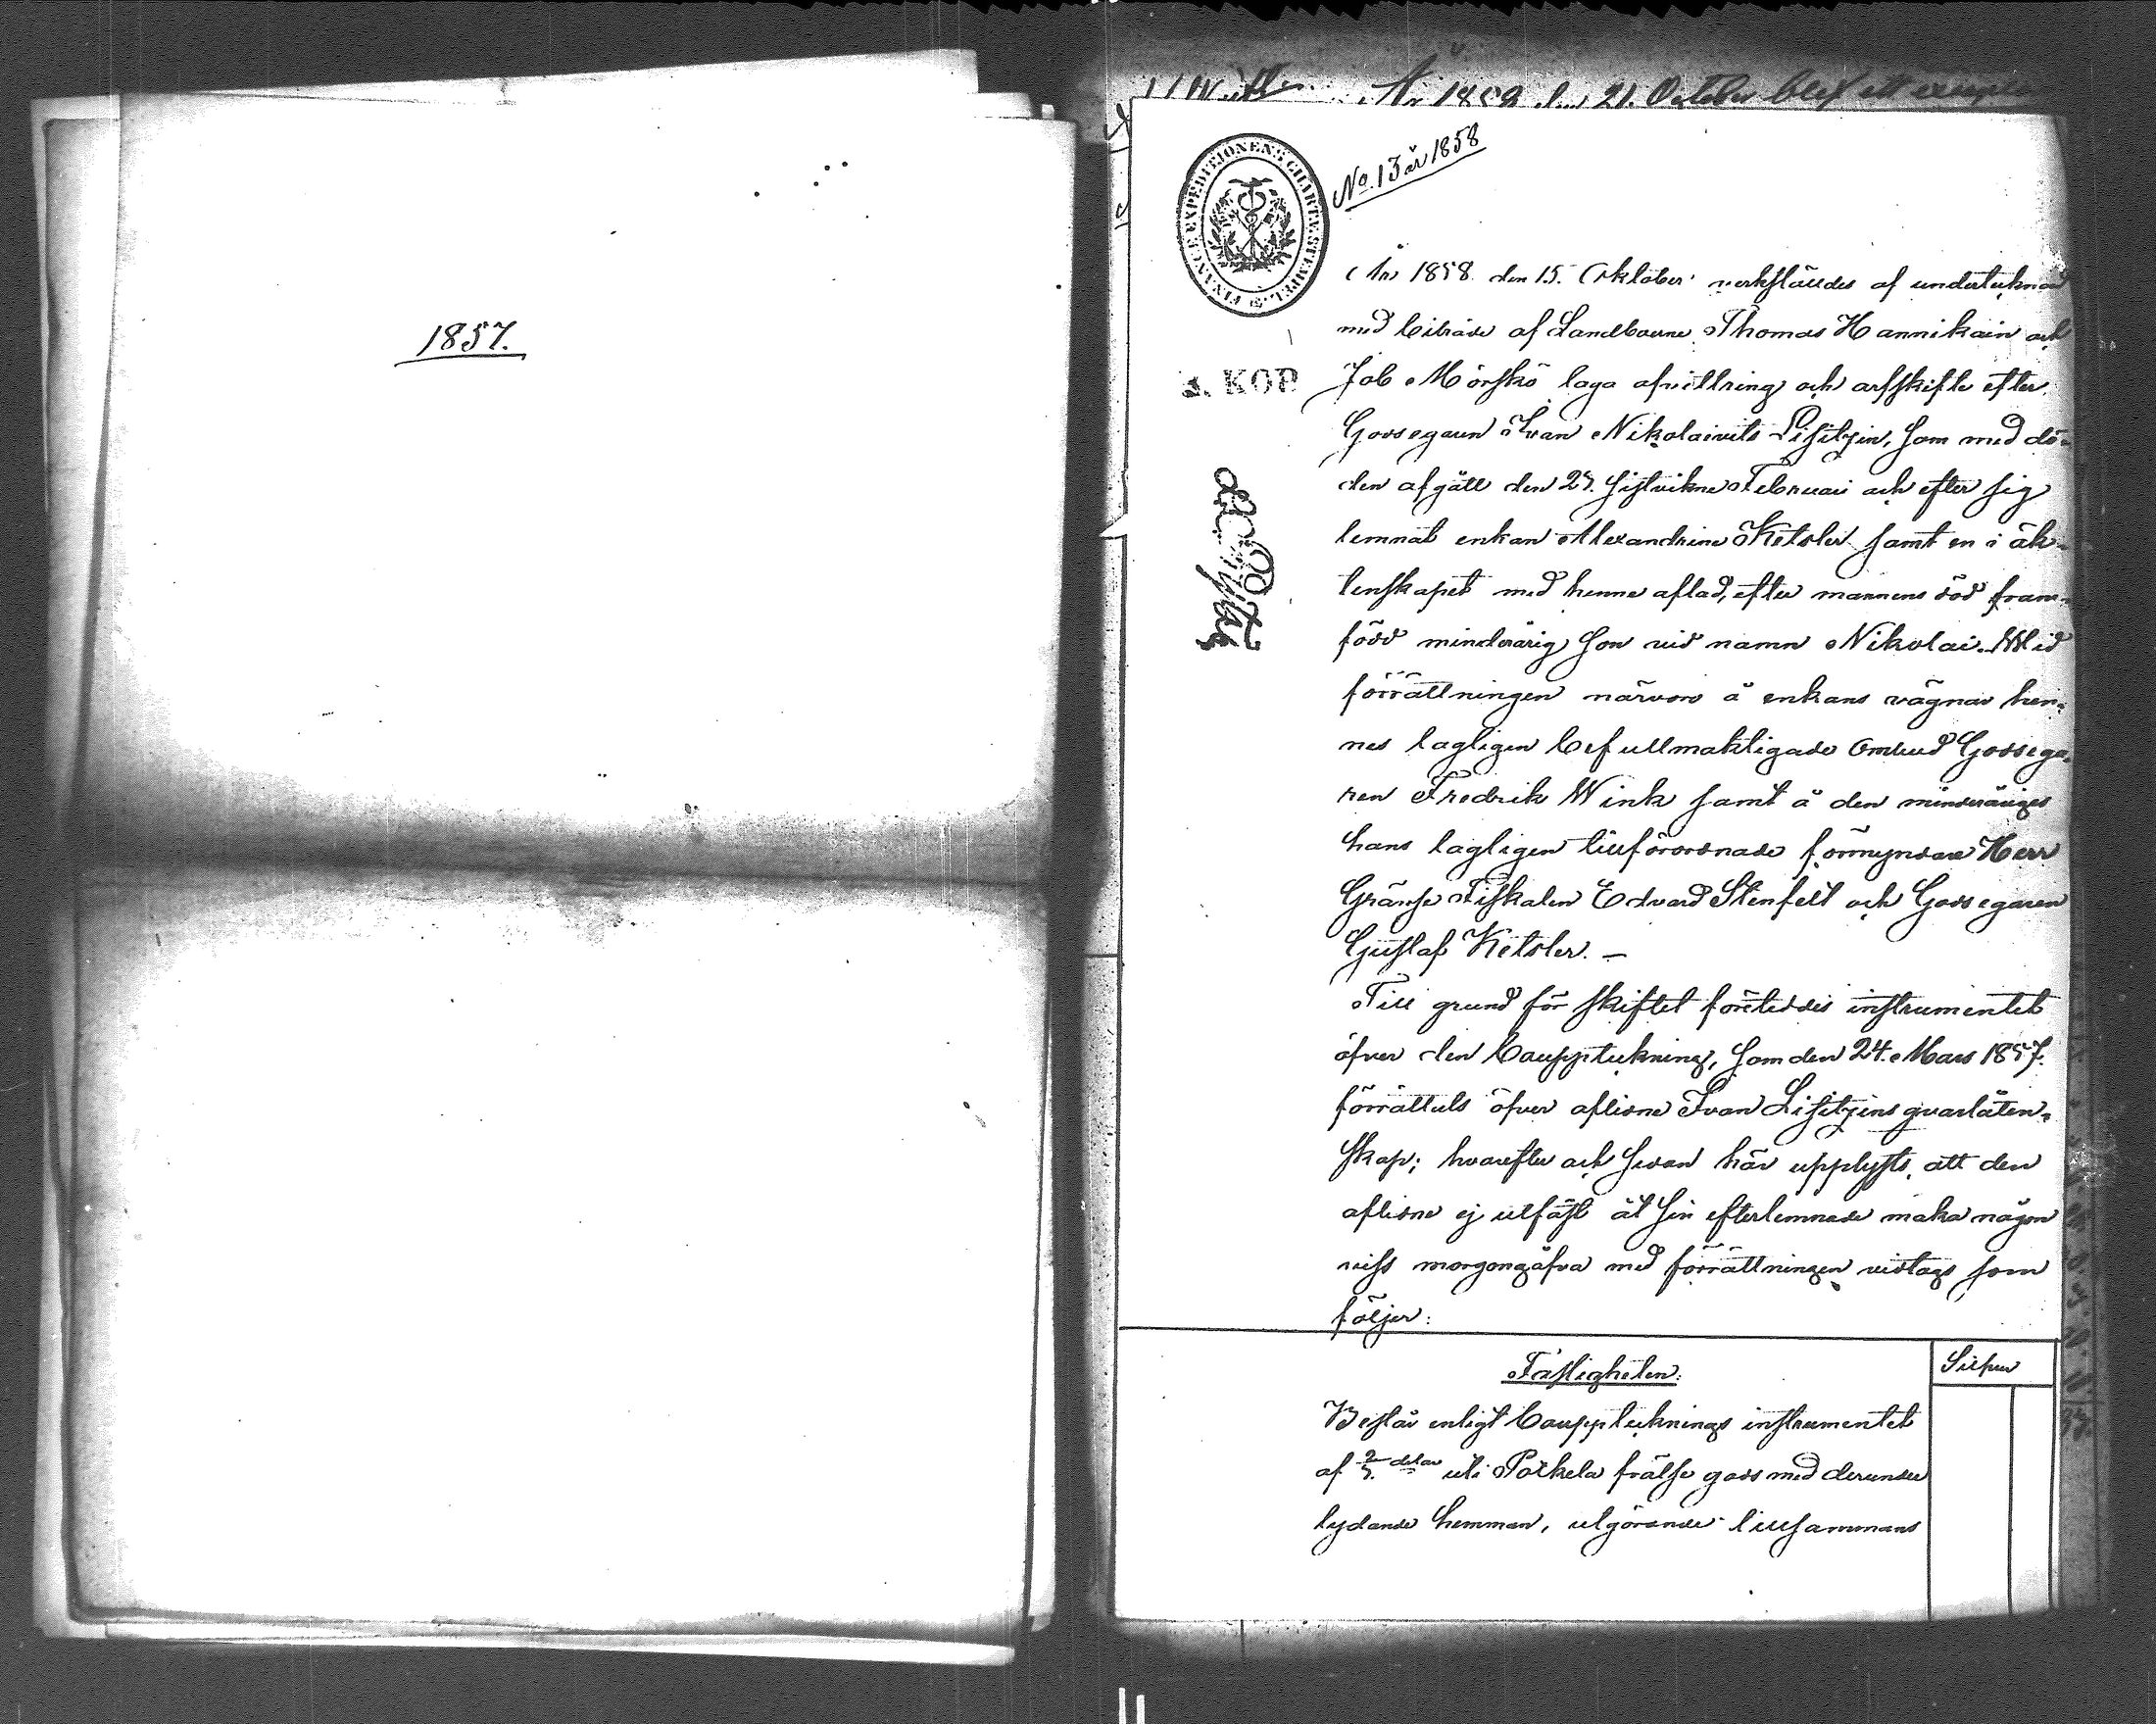 1857.
År 1858 den 21. October blef ett
FINANCE EXPEDITIONENS CHARTÆ STEMPEL.
No. 13 år 1858
År 1858 den 15. Oktober verkställdes af undertecknad
med biträde af Landboerne Thomas Hannikain och
3. KOP
Job Mörskö laga afvittring och arfskifte efter
Godsegaren Ivan Nikolaivits Lisitzin, som med dö-
den afgått den 25. sistvikne Februari och efter sig
lemnat enkan Alexandrine Ketsler samt en i äk-
tenskapet med henne aflad, efter mannens död fram-
född minderårig son vid namn Nikolai. Wid
förrättningen närvoro å enkans vägnar hen-
nes lagligen befullmäktigade Ombud Godsega-
ren Fredrik Wink samt å den minderåriges
hans lagligen tillförordnade förmyndare Herr
Gränse Fiskalen Edvard Stenfelt och Godsegaren
Gustaf Ketsler. —
Till grund för skiftet företeddes instrumentet
öfver den bouppteckning, som den 24. Mars 1857.
förrättats öfver aflidne Ivan Lisitzins qvarlåten-
skap; hvarefter och sedan här upplysts, att den
aflidne ej utfäst åt sin efterlemnade maka någon
viss morgongåfva med förrättningen vidtogs som
följer:
Fastigheten:
Silfver
Består enligt bouppteknings instrumentet
af delar uti Potkela frälse gods med derunder
lydande hemman, utgörande tillsammans